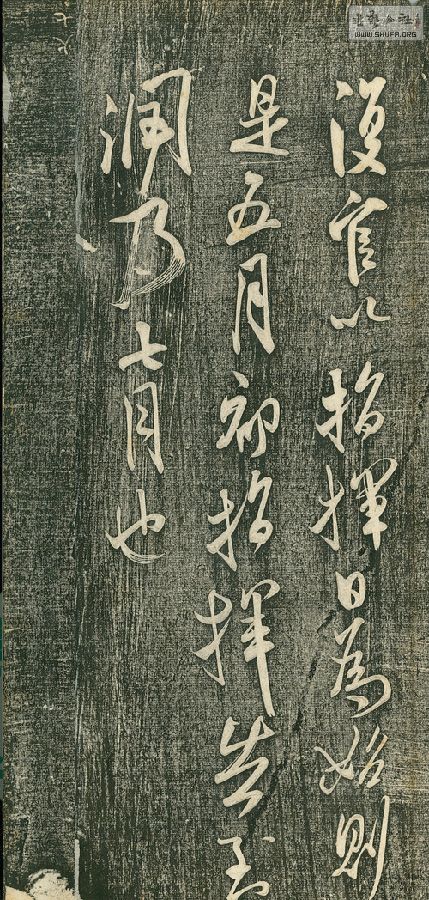 復官以指揮日為始則
是五月初指揮告至
潤乃七月也
WWW.SHUFA.ORG